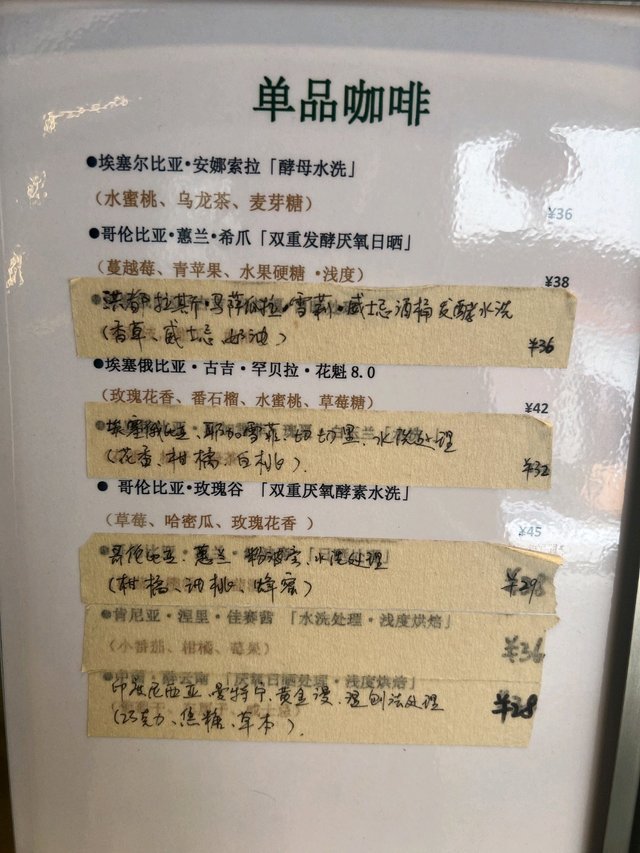 单品咖啡
●埃塞尔比亚·安娜索拉「酵母水洗」
（水蜜桃、乌龙茶、麦芽糖）
¥36
●哥伦比亚·蕙兰·希爪「双重发酵厌氧日晒」
（蔓越莓、青苹果、水果硬糖 ·浅度）
¥38
洪都拉斯·马萨瓜拉·雪莉·威士忌酒桶发酵水洗
（香草、威士忌、奶油）
¥36
●埃塞俄比亚·古吉·罕贝拉·花魁8.0
（玫瑰花香、番石榴、水蜜桃、草莓糖）
¥42
埃塞俄比亚、耶加雪菲、水洗处理
（花香、柑橘、白桃）.
¥32
● 哥伦比亚·玫瑰谷 「双重厌氧酵素水洗」
（草莓、哈密瓜、玫瑰花香 ）
¥45
哥伦比亚、蕙兰、水洗处理
（柑橘、油桃、蜂蜜）
●肯尼亚·涅里·佳赛茵 「水洗处理·浅度烘焙」
（小番茄、柑橘、莓果）
¥36
印度尼西亚、曼特宁、黄金曼、湿刨法处理
（巧克力、焦糖、草本）.
¥28